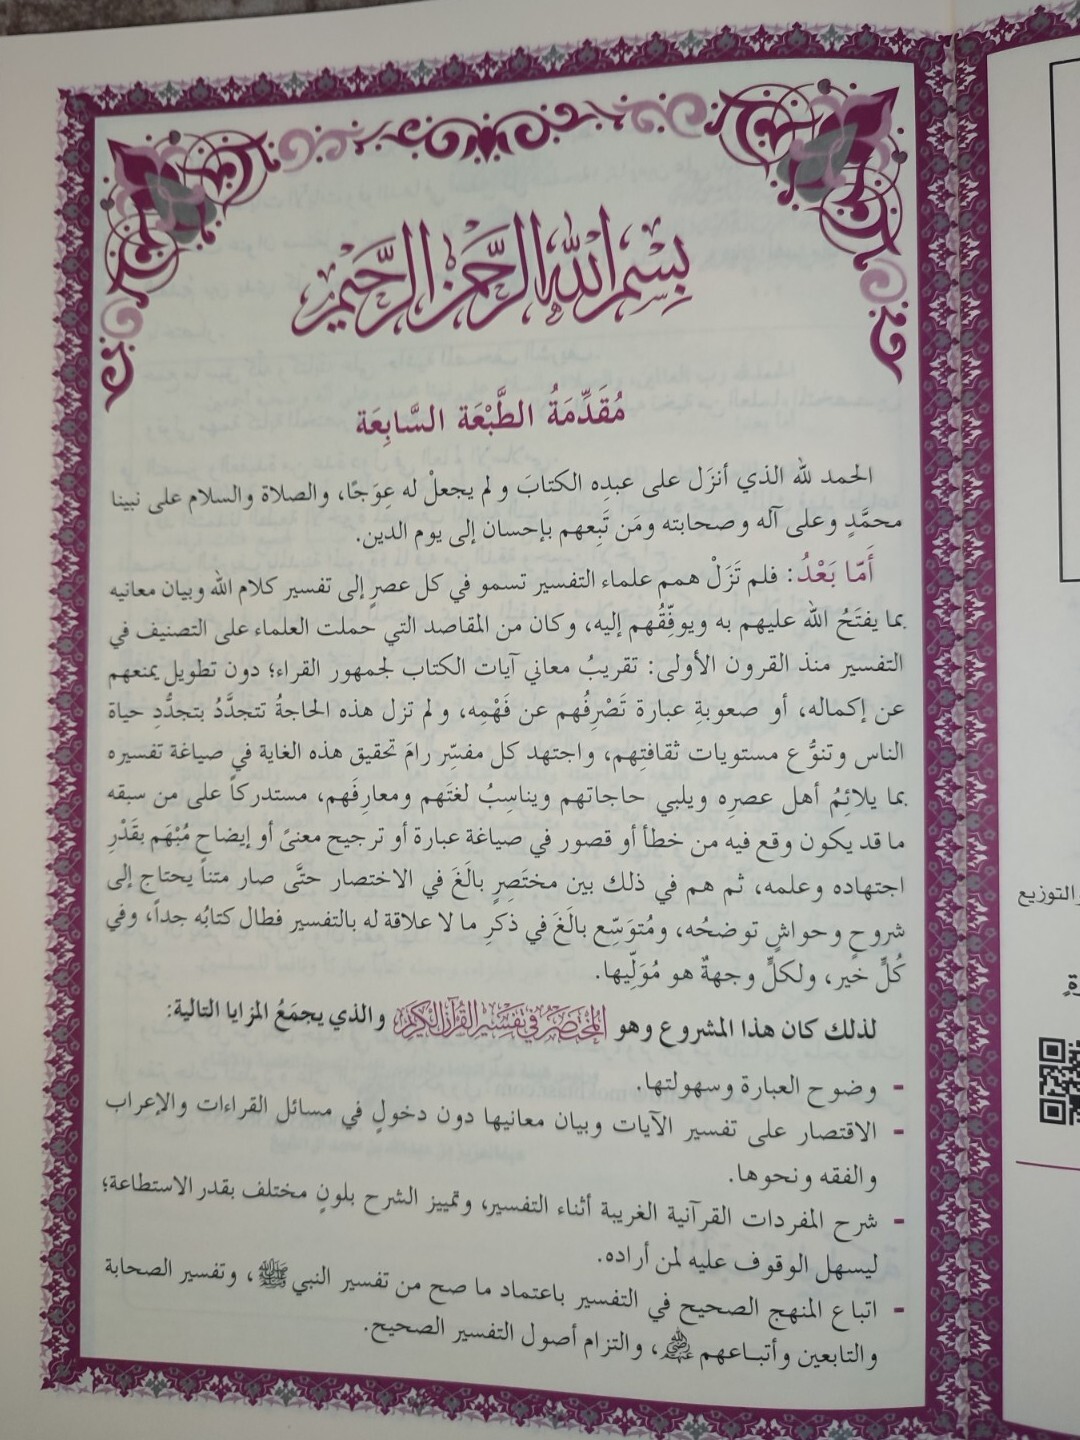 بِسْمِ اللَّهِ الرَّحْمَنِ الرَّحِيمِ
مُقَدِّمَةُ الطَّبْعَة السَّابِعَة
الحمد لله الذي أنزَل على عبدِه الكتابَ و لم يجعلْ له عِوَجًا، والصلاة والسلام على نبينا
محمَّدٍ وعلى آله وصحابته ومَن تَبِعهم بإحسان إلى يوم الدين.
أَمّا بَعْدُ: فلم تَزَلْ همم علماء التفسير تسمو في كل عصرٍ إلى تفسير كلام الله وبيان معانيه
بما يفتَحُ الله عليهم به ويوفِّقُهم إليه، وكان من المقاصد التي حملت العلماء على التصنيف في
التفسير منذ القرون الأولى: تقريبُ معاني آيات الكتاب لجمهور القراء؛ دون تطويل يمنعهم
عن إكماله، أو صعوبةِ عبارة تَصْرِفُهم عن فَهْمِه، ولم تزل هذه الحاجةُ تتجدَّدُ بتجدُّدِ حياة
الناس وتنوُّع مستويات ثقافتِهم، واجتهد كل مفسِّر رامَ تحقيق هذه الغاية في صياغة تفسيره
بما يلائِمُ أهل عصرِه ويلبي حاجاتهم ويناسِبُ لغتَهم ومعارِفَهم، مستدركاً على من سبقه
ما قد يكون وقع فيه من خطأ أو قصور في صياغة عبارة أو ترجيح معنىً أو إيضاح مُبْهَم بقَدْرِ
اجتهاده وعلمه، ثم هم في ذلك بين مختَصِرٍ بالَغَ في الاختصار حتَّى صار متناً يحتاج إلى
شروحٍ وحواشٍ توضحُه، ومُتوَسِّع بالَغَ في ذكرِ ما لا علاقة له بالتفسير فطال كتابُه جداً، وفي
كُلٍّ خير، ولكلٍّ وجهةٌ هو مُوَلِّيها.
لذلك كان هذا المشروع وهو المُخْتَصَرُ فِي تَفْسِيرِ القُرْآنِ الكَرِيمِ والذي يجمَعُ المزايا التالية:
- وضوح العبارة وسهولتها.
- الاقتصار على تفسير الآيات وبيان معانيها دون دخولٍ في مسائل القراءات والإعراب
والفقه ونحوها.
- شرح المفردات القرآنية الغريبة أثناء التفسير، وتمييز الشرح بلونٍ مختلف بقدر الاستطاعة؛
ليسهل الوقوف عليه لمن أراده.
- اتباع المنهج الصحيح في التفسير باعتماد ما صح من تفسير النبي ﷺ، وتفسير الصحابة
والتابعين وأتباعهم، والتزام أصول التفسير الصحيح.
والتوزيع